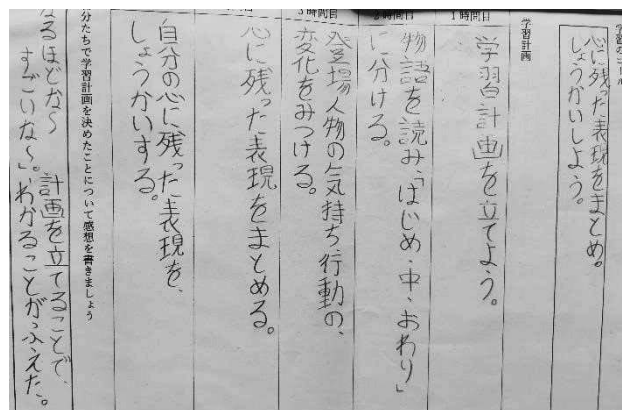 学習のゴール
心に残った表現をまとめ。
しょうかいしよう。
学習計画
1時間目
学習計画を立てよう。
2時間目
物語を読み、「はじめ・中・おわり」
に分ける。
3時間目
登場人物の気持ち行動の、
変化をみつける。
心に残った表現をまとめる。
自分の心に残った表現を、
しょうかいする。
分たちで学習計画を決めたことについて感想を書きましょう
計画を立てることで、
なるほどな〜
すごいな〜。わかることがふえた。